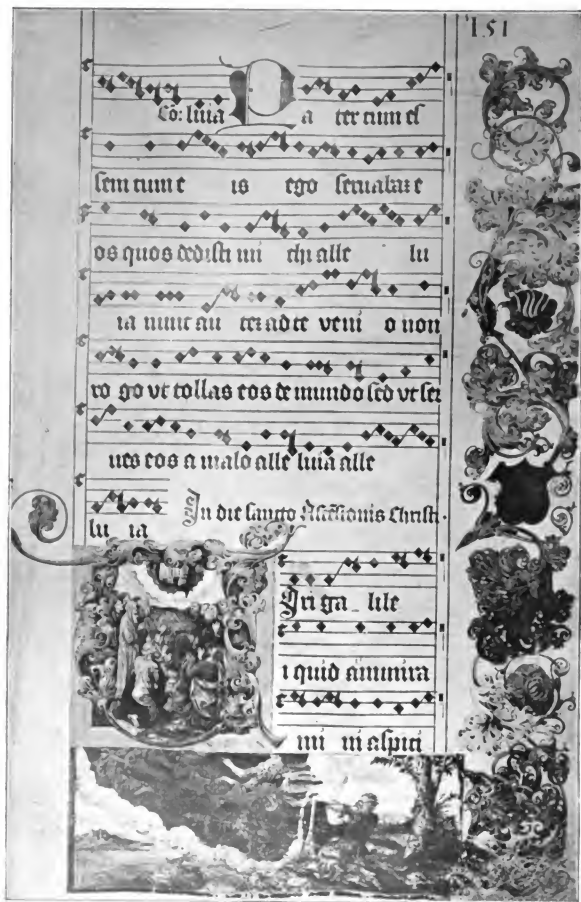 151
Cõ: luia P a ter cum es
sem cum e is ego seruabā e
os quos dedisti mi chi alle lu
ia nunc au tē ad te veni o non
ro go vt tollas eos de mundo sed vt ser
ues eos a malo alle luia alle
lu ia
In die sancto Ascēsionis Christi.
Viri ga lile
i quid ammira
mi ni aspici